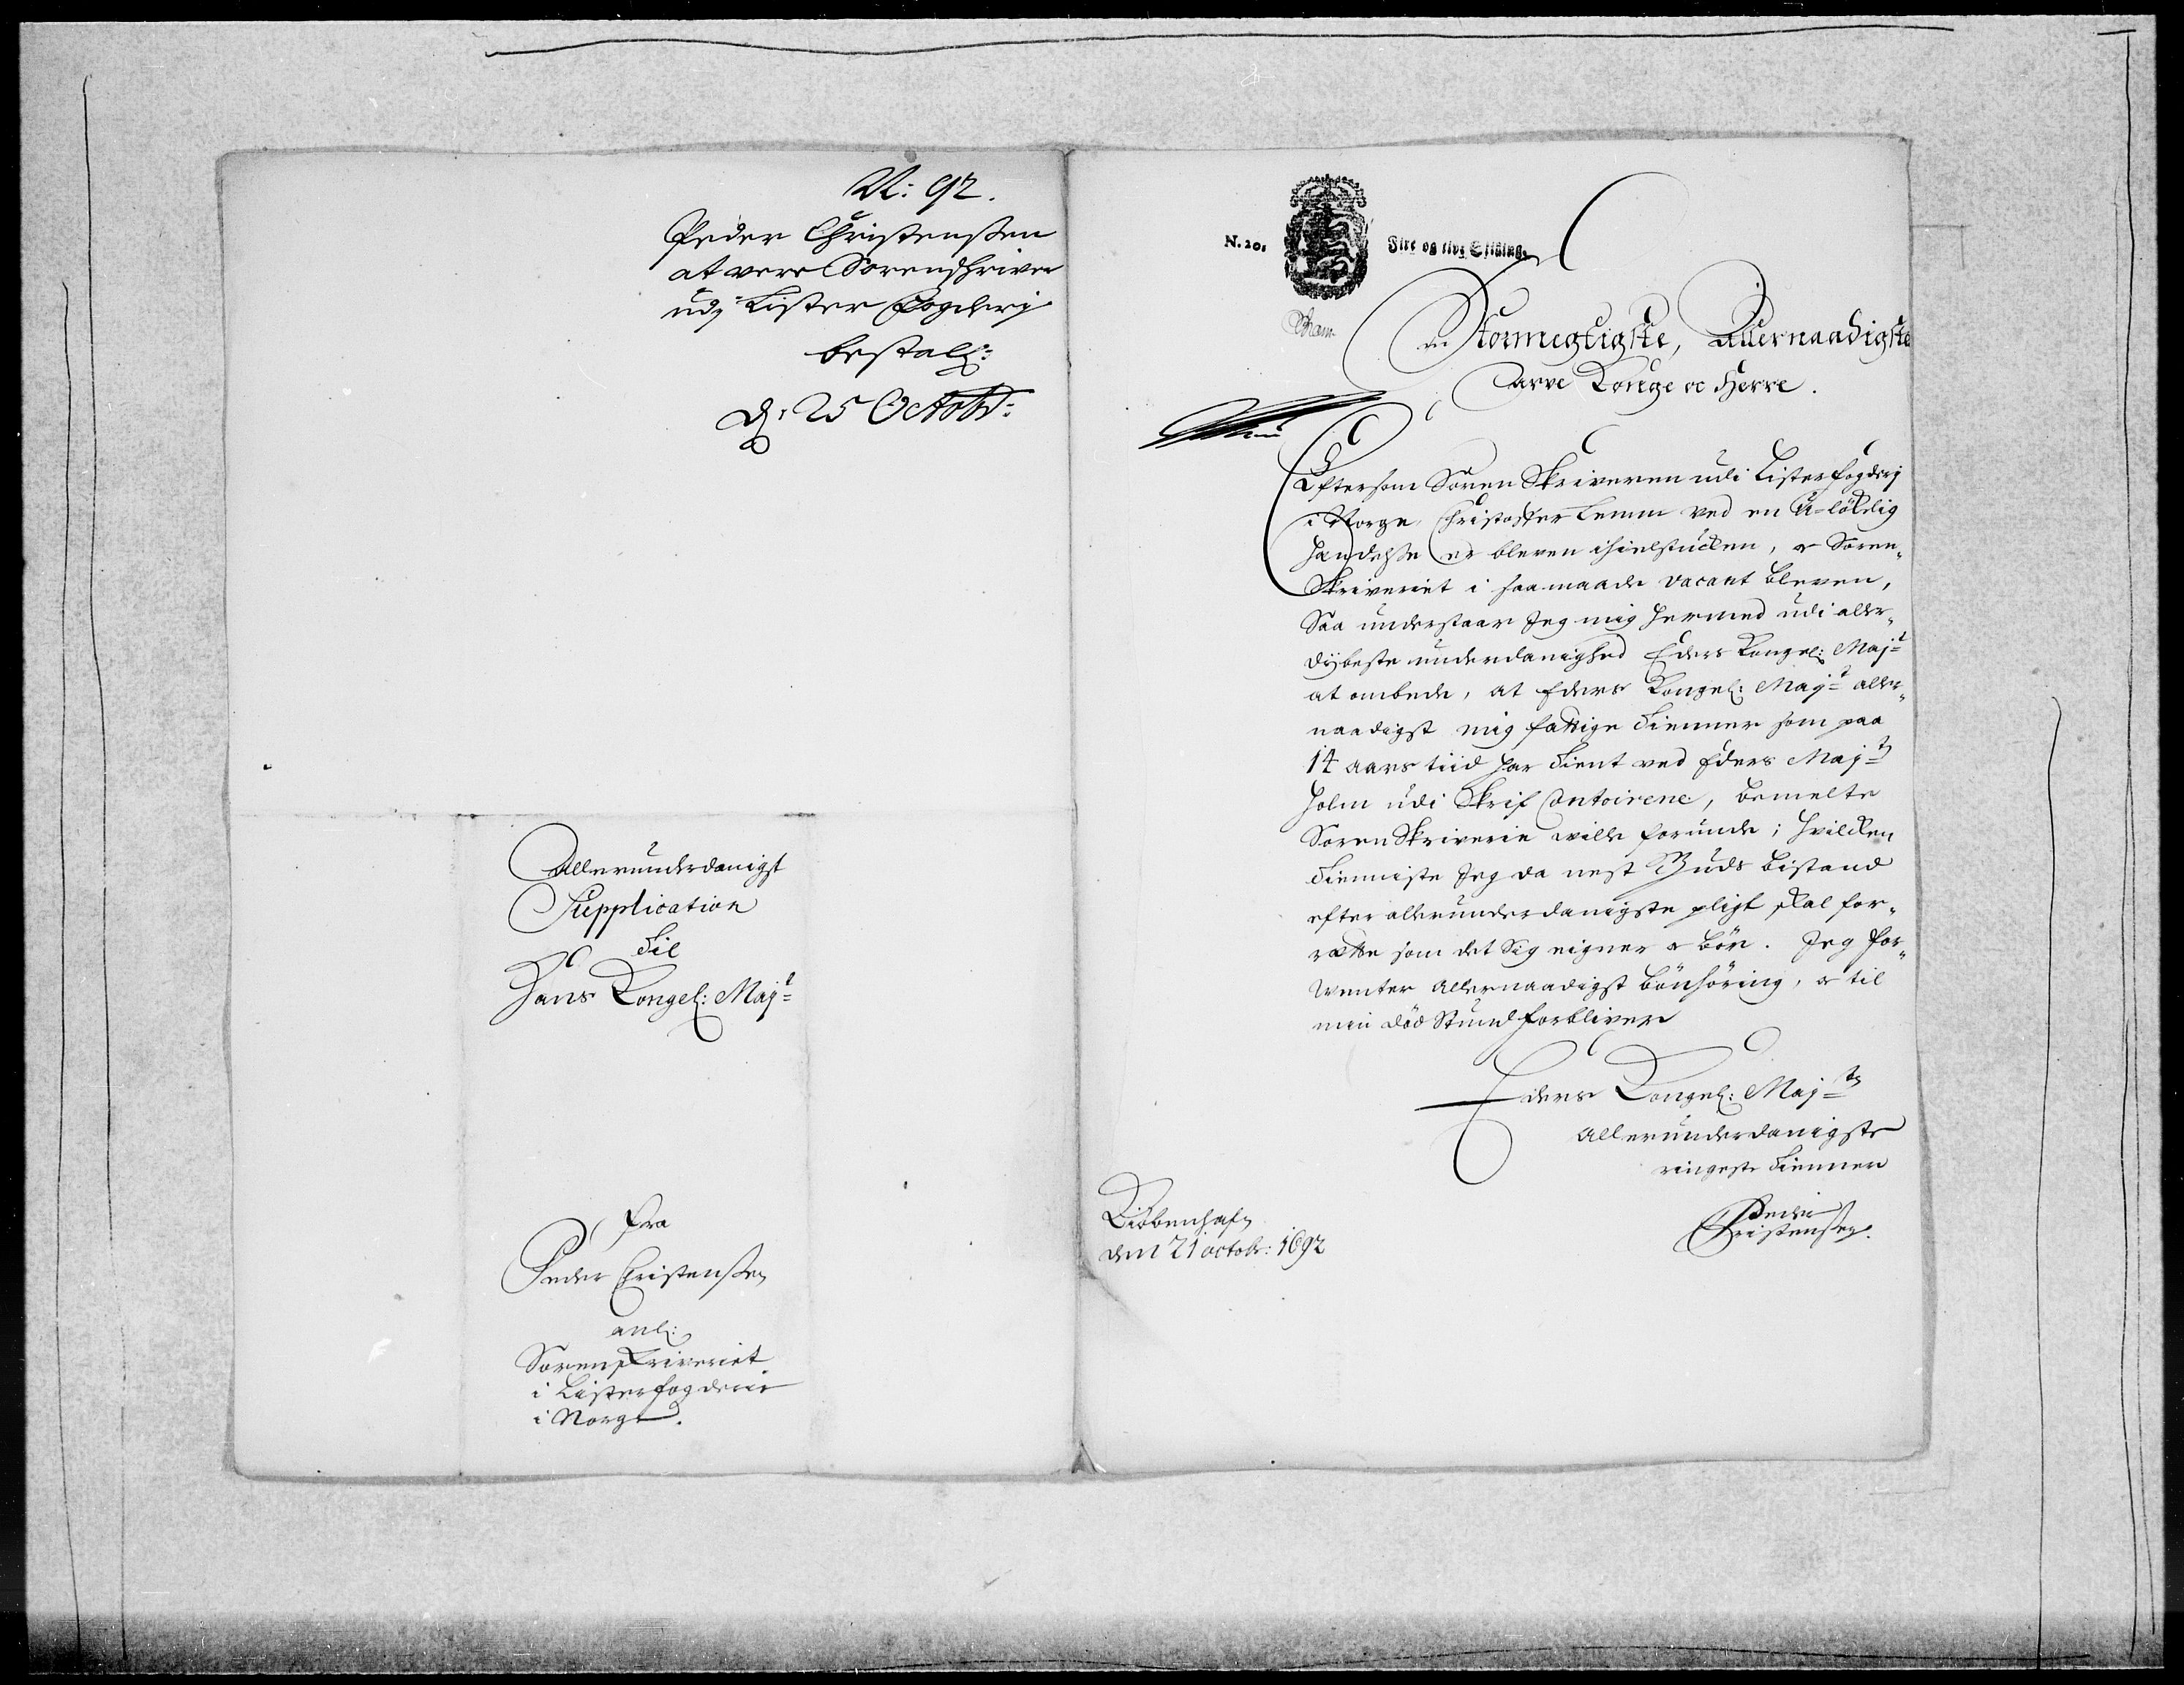 N: 92.
Peder Christenssen
at vere Sorenschriver
udj Lister Fogderj
bestall:
d: 25 Octobr:
Allerunderdanigst
Supplication
Til
Hans Kongel: Majt
fra
Peder Christenssen
anl:
Sorenskriveriet
i Lister fogderie
i Norge.
N. 20.
Fire og tive Skilling.
Stormegtigste, Allernaadigste
Arve Konge oc Herre.
Eftersom Soren Skriveren udi Lister fogderj
i Norge, Christoffer Lemm ved en U-lökelig
Hendelsse er bleven ihielstucken, & Soren-
Skriveriet i saa maade vacant bleven,
Saa understaar Jeg mig hermed udi aller-
dybeste underdanighed Eders Kongel: Majt
at ombede, at Eders Kongel: Majt aller-
naadigst mig fattige Tienner som paa
14 aars tiid har Tient ved Eders Majts
Holm udi Skrif Contoirene, bemelte
Soren Skriverie wille forunde; hvilcken
Tienniste Jeg da nest Guds bistand
efter allerunderdanigste pligt skal for-
rette som det Sig eigner & bör. Jeg for-
wenter allernaadigst bönhöring, & til
min död Stund forbliver
Eders Kongel: Majts
allerunderdanigste
ringeste Tienner
Peder
Christenssen.
Kiöbenhafn
den 21 octobr: 1692